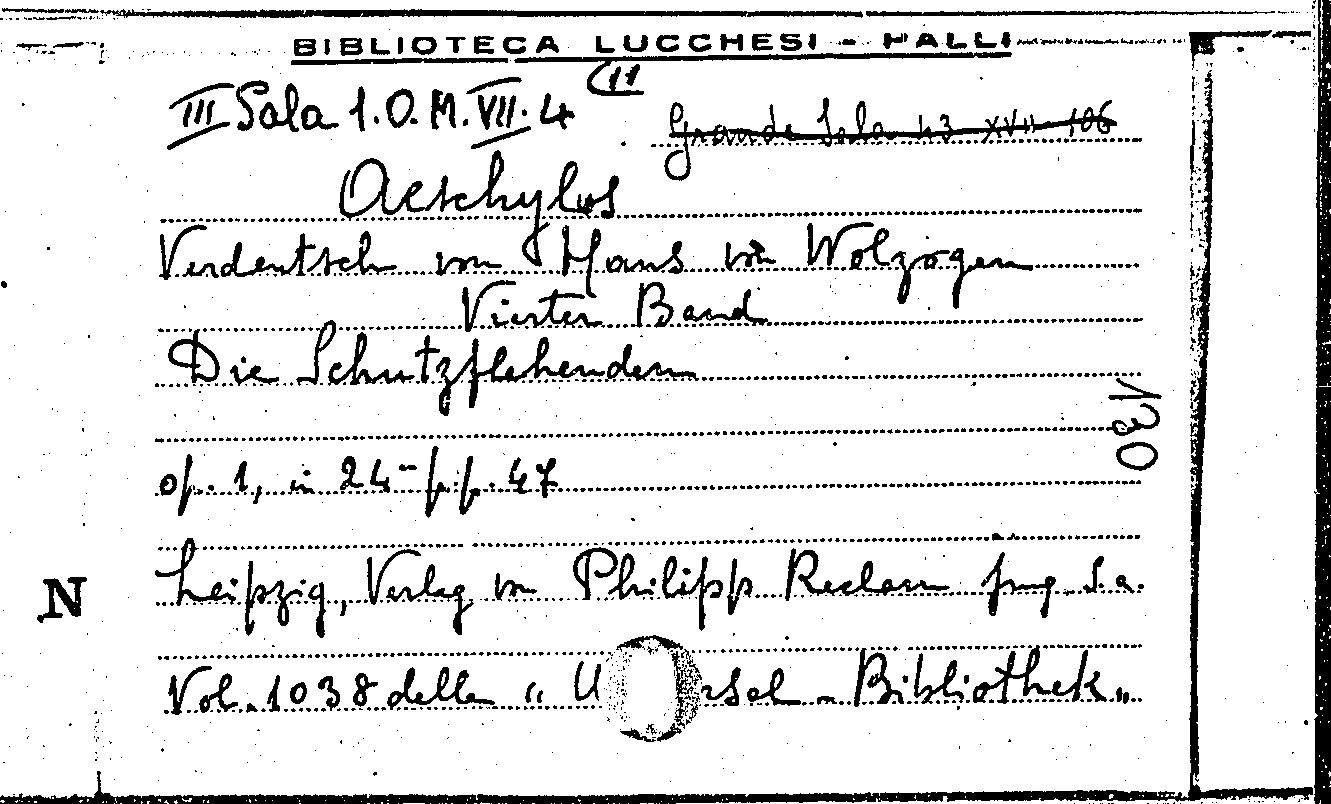 BIBLIOTECA LUCCHESI - PALLI
III Sala 1.O.M.VII.4 (11
Grande Sala 43 XVII 106
Aeschylos
Verdeutsch von Hans von Wolzogen
Vierter Band
Die Schutzflehenden
130
op. 1, in 24° p.p. 47
N
Leipzig, Verlag von Philipp Reclam jung. S.a.
Vol. 1038 delle "U rsal - Bibliothek"